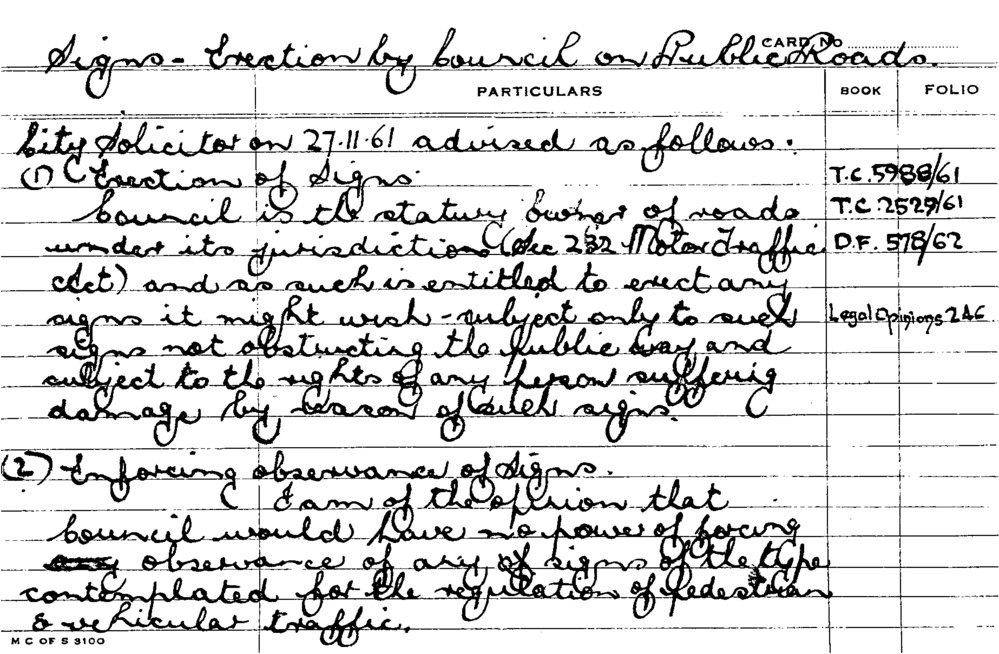 CARD No
Signs - Erection by Council on Public Roads.
PARTICULARS BOOK FOLIO
City Solicitor on 27.11.61 advised as follows.
(1) Erection of Signs. T.C. 5988/61
Council is the statury owner of roads T.C. 2529/61
under its jurisdiction (Sec 232 Motor Traffic D.F. 578/62
Act) and as such is entitled to erect any
signs it might wish - subject only to such Legal Opinions 246
signs not obstructing the public way and
subject to the rights of any person suffering
damage by reason of such signs.
(2) Enforcing observance of Signs.
I am of the opinion that
Council would have no power of forcing
observance of any of signs of the type
contemplated for the regulation of pedestrian
& vehicular traffic.
M C OF S 3100